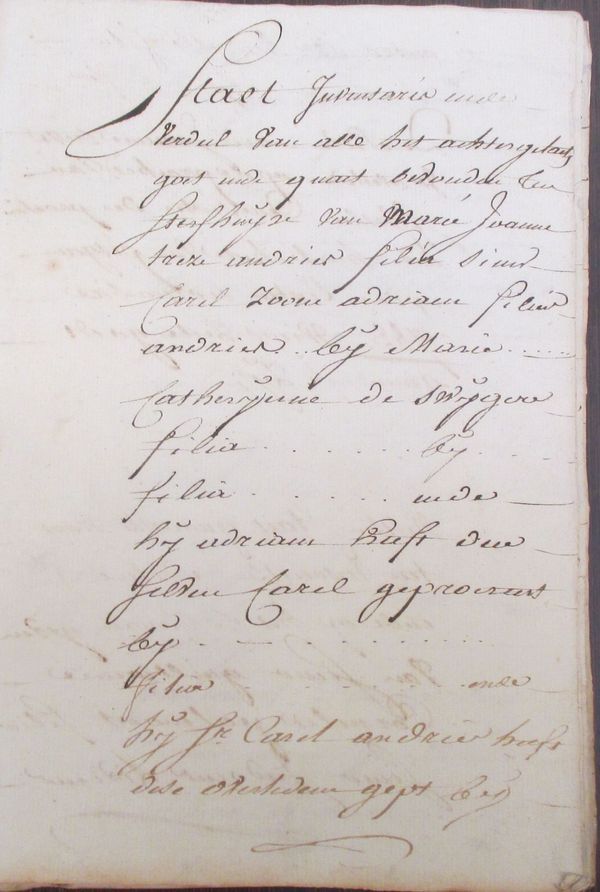 Staet Inventaris ende
verdul van alle het achtergelaeten
goet ende quaet bevonden ten
sterfhuyse van Marie Joanne
treze andries filia Sieur
Carel Zoone adriaen filius
andries .. by Marie .....
Catherÿnne de swÿgere
filia ....... bÿ
filia ..... ende
hÿ adriaen heeft den
selven Carel geprocreert
bÿ ..........
filia ........ ende
hÿ Sr Carel andries heeft
dese overledene gept bÿ